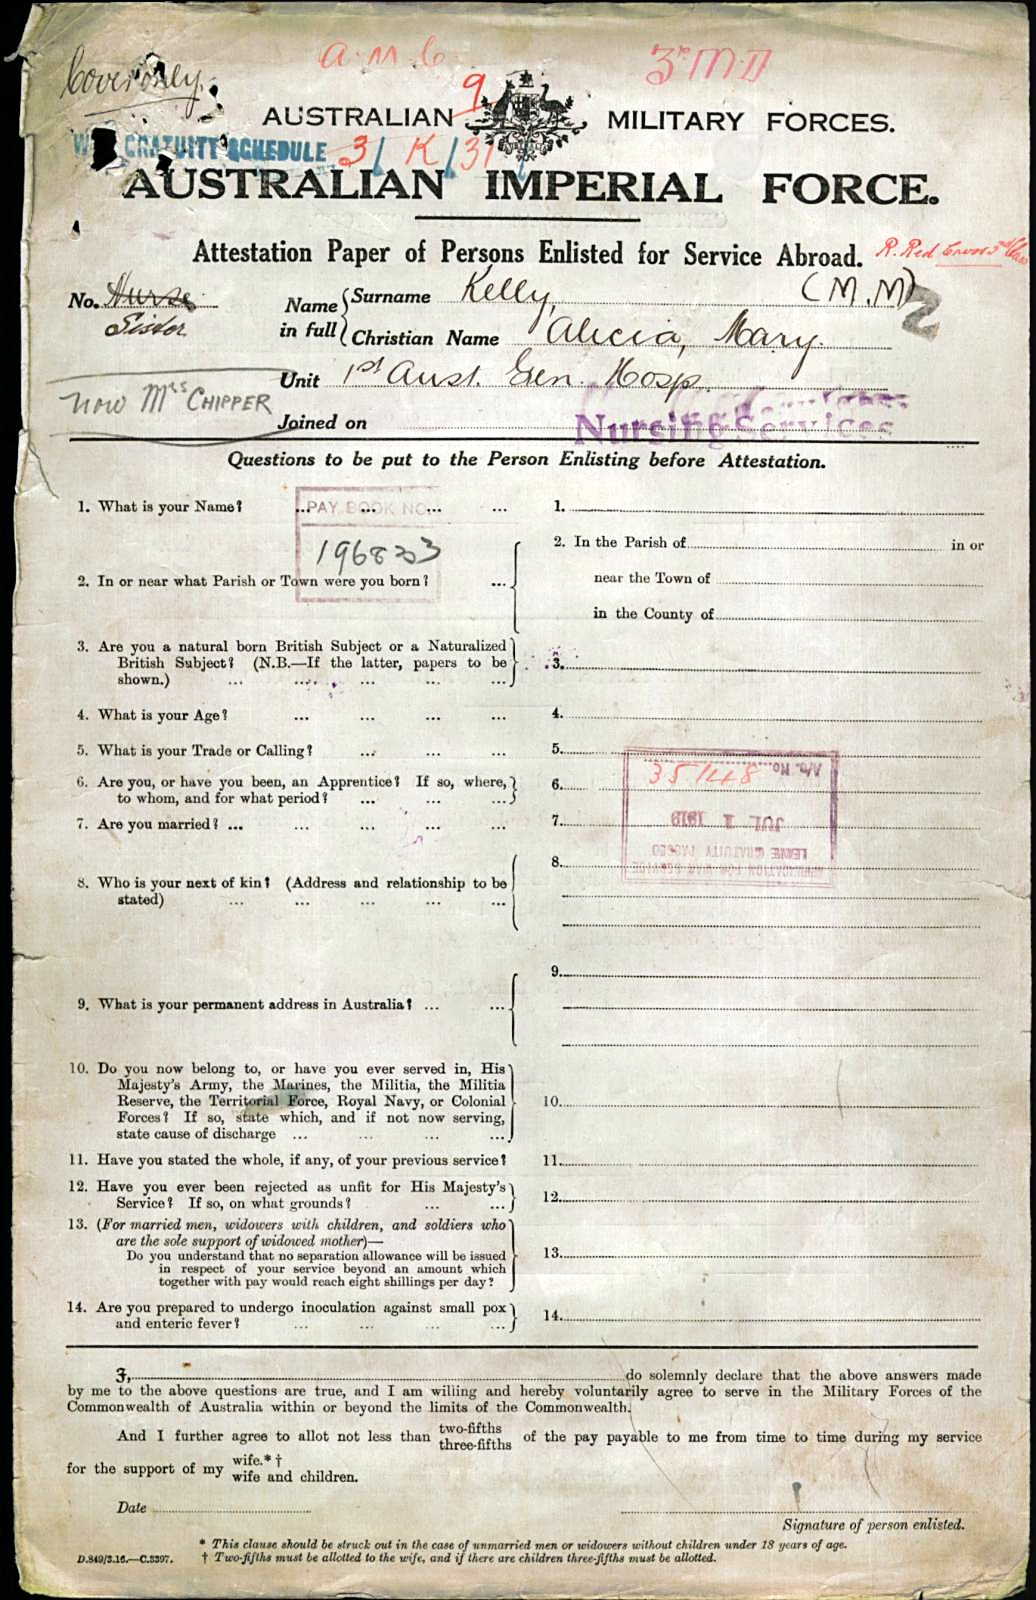 Cover only.
a. M. C
9
3rd M D
AUSTRALIAN MILITARY FORCES.
GRATUITY SCHEDULE 3/ K/ 31
AUSTRALIAN IMPERIAL FORCE.
Attestation Paper of Persons Enlisted for Service Abroad.
R. Red Cross 2nd Class
No. Nurse
Sister
Name in full
Surname Kelly, (M.M) 2
Christian Name Alicia, Mary.
Unit 1st Aust. Gen. Hosp.
now Mrs CHIPPER
Joined on
Nursing Services
Questions to be put to the Person Enlisting before Attestation.
1. What is your Name? ... ... ... ... 1.
PAY BOOK NO.
196833
2. In or near what Parish or Town were you born? ...
2. In the Parish of in or
near the Town of
in the County of
3. Are you a natural born British Subject or a Naturalized
British Subject? (N.B.—If the latter, papers to be
shown.) ... ... ... ... ...
3.
4. What is your Age? ... ... ... ... 4.
5. What is your Trade or Calling? ... ... ... 5.
6. Are you, or have you been, an Apprentice? If so, where,
to whom, and for what period? ... ... ...
6.
A/c. No.
35148
JUL 1 1919
LEAVE GRATUITY PASSED
7. Are you married? ... ... ... ... ... 7.
8. Who is your next of kin? (Address and relationship to be
stated) ... ... ... ... ...
8.
9. What is your permanent address in Australia? ... ...
9.
10. Do you now belong to, or have you ever served in, His
Majesty's Army, the Marines, the Militia, the Militia
Reserve, the Territorial Force, Royal Navy, or Colonial
Forces? If so, state which, and if not now serving,
state cause of discharge ... ... ... ...
10.
11. Have you stated the whole, if any, of your previous service? 11.
12. Have you ever been rejected as unfit for His Majesty's
Service? If so, on what grounds? ... ...
12.
13. (For married men, widowers with children, and soldiers who
are the sole support of widowed mother)—
Do you understand that no separation allowance will be issued
in respect of your service beyond an amount which
together with pay would reach eight shillings per day?
13.
14. Are you prepared to undergo inoculation against small pox
and enteric fever? ... ... ... ...
14.
I, do solemnly declare that the above answers made
by me to the above questions are true, and I am willing and hereby voluntarily agree to serve in the Military Forces of the
Commonwealth of Australia within or beyond the limits of the Commonwealth.
And I further agree to allot not less than two-fifths three-fifths of the pay payable to me from time to time during my service
for the support of my wife.* † wife and children.
Date
Signature of person enlisted.
* This clause should be struck out in the case of unmarried men or widowers without children under 18 years of age.
D.849/3.16.—C.3397. † Two-fifths must be allotted to the wife, and if there are children three-fifths must be allotted.